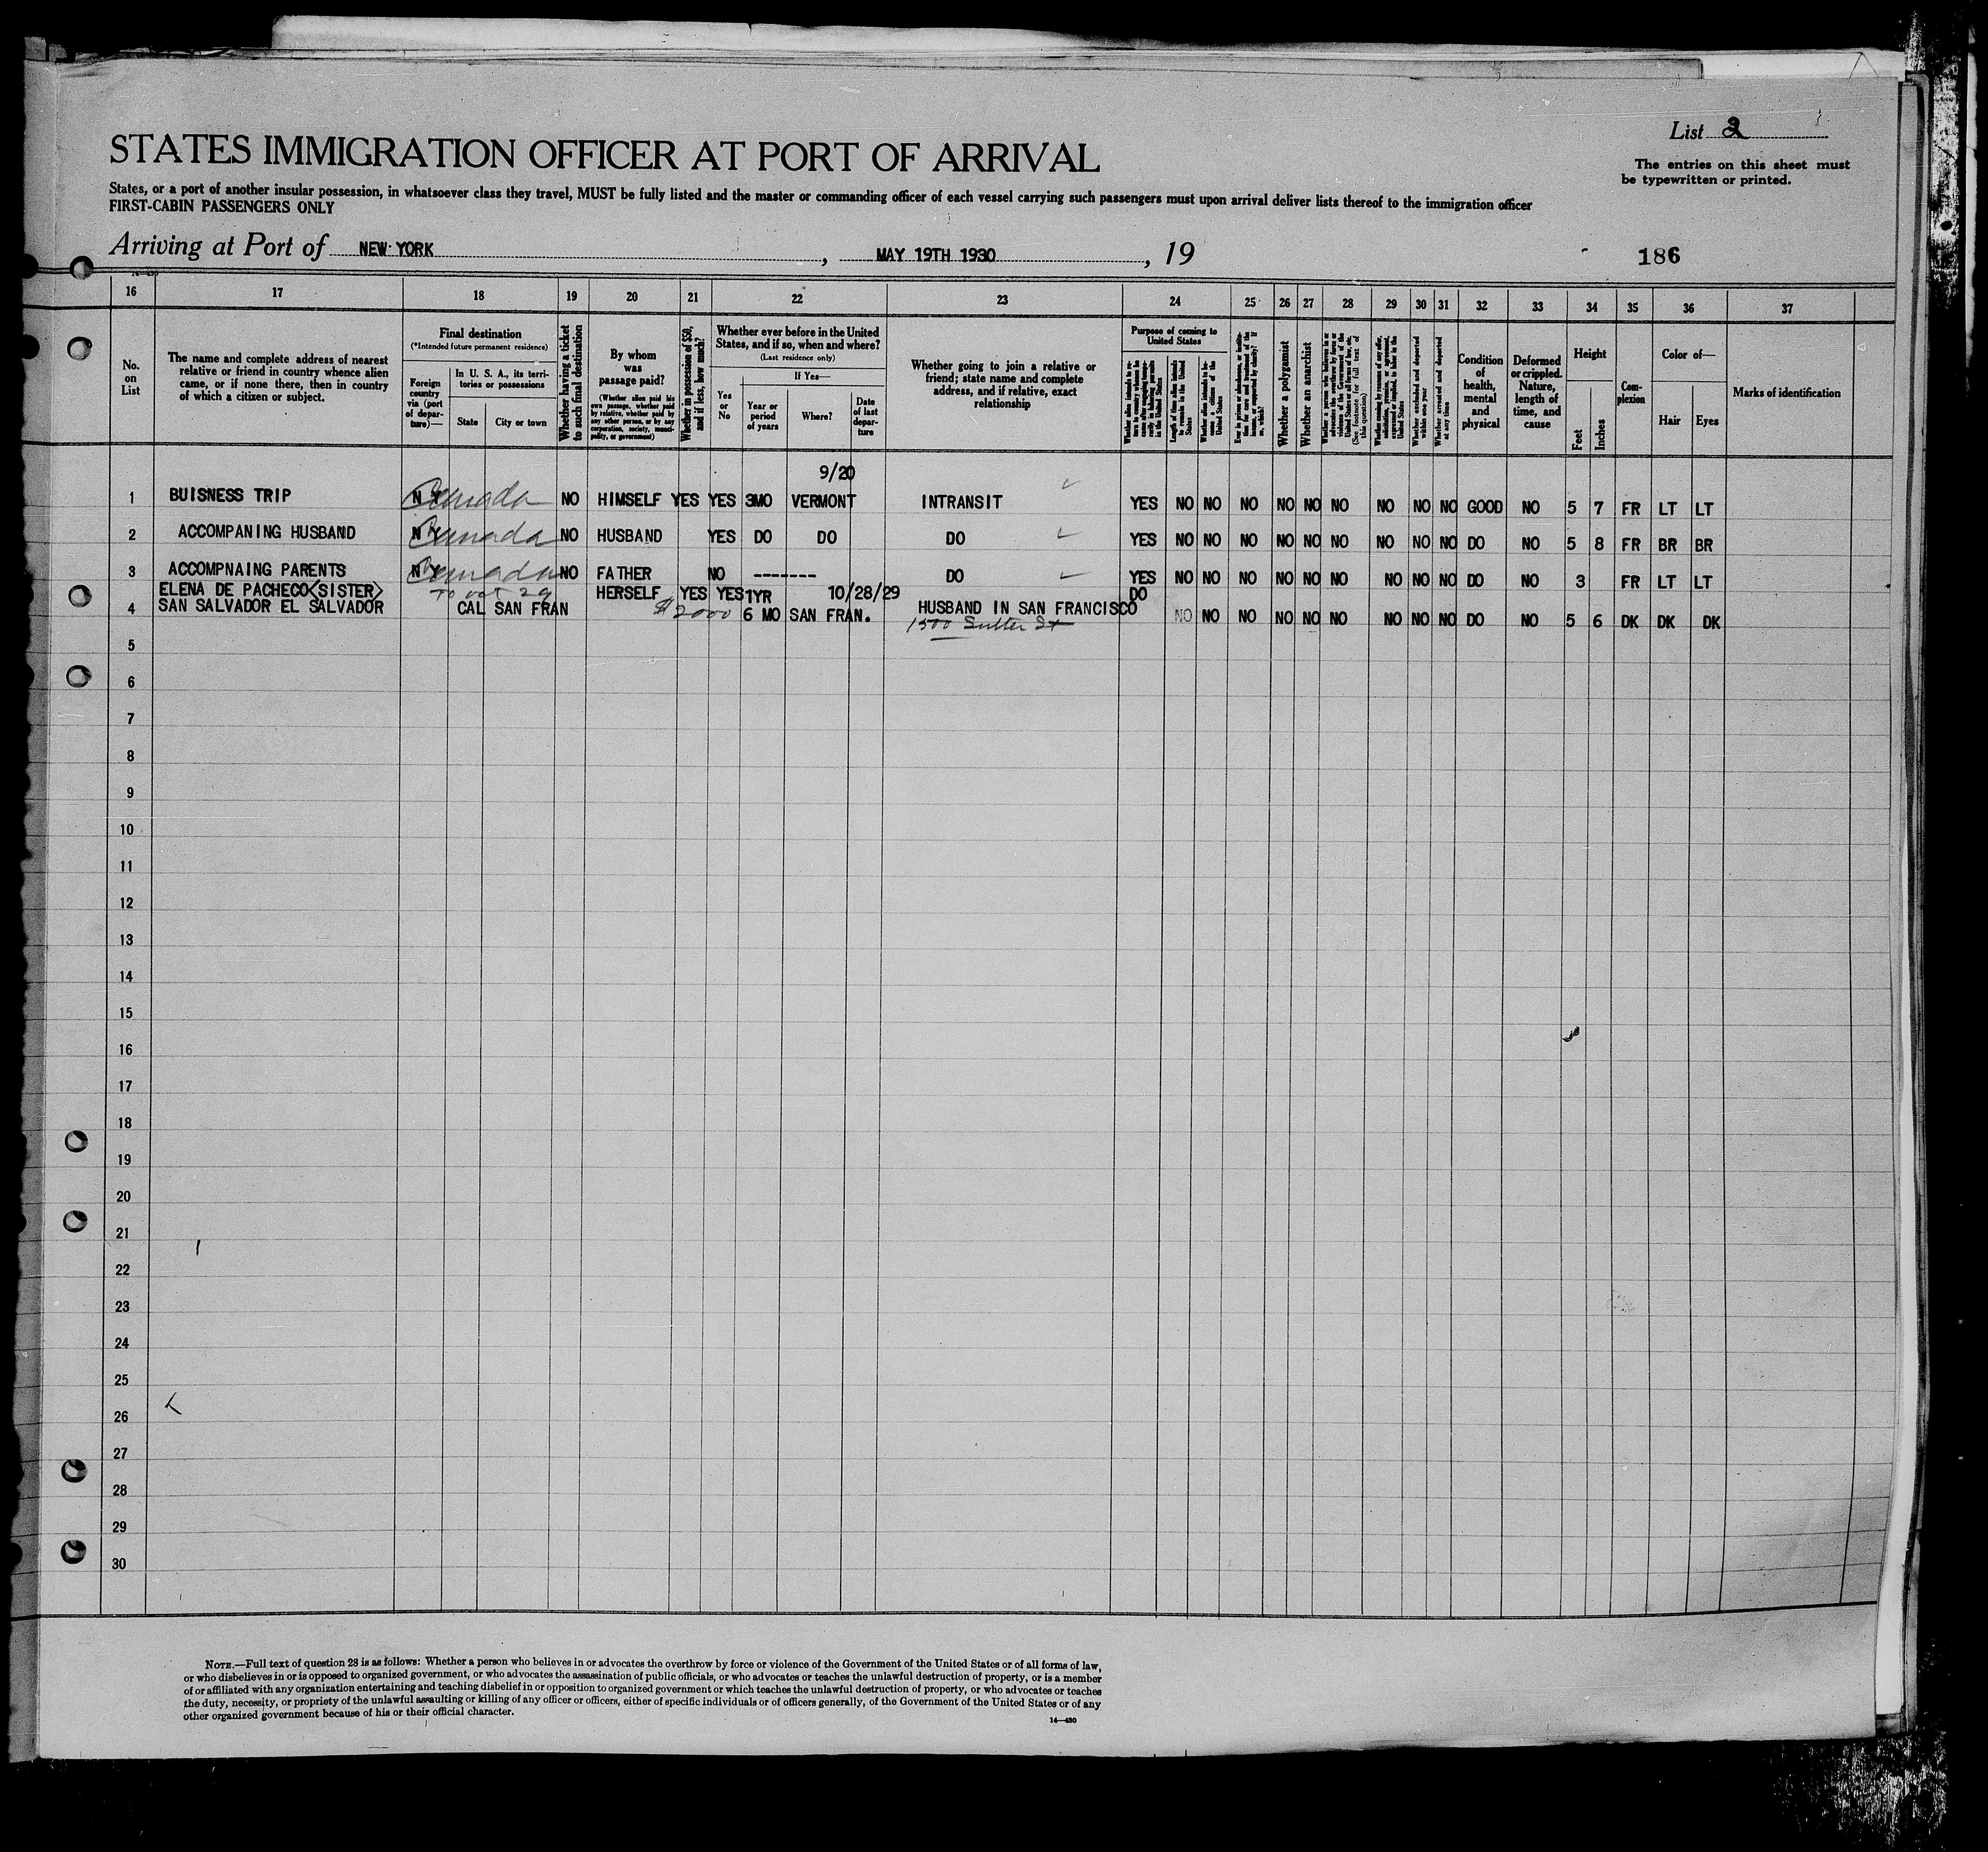 List 2
STATES IMMIGRATION OFFICER AT PORT OF ARRIVAL
The entries on this sheet must
be typewritten or printed.
States, or a port of another insular possession, in whatsoever class they travel, MUST be fully listed and the master or commanding officer of each vessel carrying such passengers must upon arrival deliver lists thereof to the immigration officer
FIRST-CABIN PASSENGERS ONLY
Arriving at Port of NEW YORK, MAY 19TH 1930, 19
186
16 17 18 19 20 21 22 23 24 25 26 27 28 29 30 31 32 33 34 35 36 37
No.
on
List
The name and complete address of nearest
relative or friend in country whence alien
came, or if none there, then in country
of which a citizen or subject.
Final destination
(*Intended future permanent residence)
Foreign
country
via (port
of depar-
ture)—
In U. S. A., its terri-
tories or possessions
State
City or town
Whether having a ticket
to such final destination
By whom
was
passage paid?
(Whether alien paid his
own passage, whether paid
by relative, whether paid by
any other person, or by any
corporation, society, munici-
pality, or government)
Whether in possession of $50,
and if less, how much?
Whether ever before in the United
States, and if so, when and where?
(Last residence only)
Yes
or
No
If Yes—
Year or
period
of years
Where?
Date
of last
depar-
ture
Whether going to join a relative or
friend; state name and complete
address, and if relative, exact
relationship
Purpose of coming to
United States
Length of time alien intends
to remain in the United
States
Whether alien intends to be-
come a citizen of the
United States
Whether a polygamist
Whether an anarchist
(See footnote for full text of
this question)
Whether arrested and deported
at any time
Condition
of
health,
mental
and
physical
Deformed
or crippled.
Nature,
length of
time, and
cause
Height
Feet
Inches
Com-
plexion
Color of—
Hair
Eyes
Marks of identification
9/20
1 BUISNESS TRIP N Y Canada NO HIMSELF YES YES 3MO VERMONT INTRANSIT YES NO NO NO NO NO NO NO NO NO GOOD NO 5 7 FR LT LT
2 ACCOMPANING HUSBAND N Y Canada NO HUSBAND YES DO DO DO YES NO NO NO NO NO NO NO NO NO DO NO 5 8 FR BR BR
3 ACCOMPNAING PARENTS N Y Canada NO FATHER NO ------- DO YES NO NO NO NO NO NO NO NO NO DO NO 3 FR LT LT
ELENA DE PACHECO<SISTER> To Oct 29 HERSELF YES YES 1YR 10/28/29 DO
4 SAN SALVADOR EL SALVADOR CAL SAN FRAN $2000 6 MO SAN FRAN. HUSBAND IN SAN FRANCISCO NO NO NO NO NO NO NO NO NO DO NO 5 6 DK DK DK
1500 Sutter St
5
6
7
8
9
10
11
12
13
14
15
16
17
18
19
20
21
22
23
24
25
26
27
28
29
30
NOTE.—Full text of question 28 is as follows: Whether a person who believes in or advocates the overthrow by force or violence of the Government of the United States or of all forms of law,
or who disbelieves in or is opposed to organized government, or who advocates the assassination of public officials, or who advocates or teaches the unlawful destruction of property, or is a member
of or affiliated with any organization entertaining and teaching disbelief in or opposition to organized government or which teaches the unlawful destruction of property, or who advocates or teaches
the duty, necessity, or propriety of the unlawful assaulting or killing of any officer or officers, either of specific individuals or of officers generally, of the Government of the United States or of any
other organized government because of his or their official character.
14—430